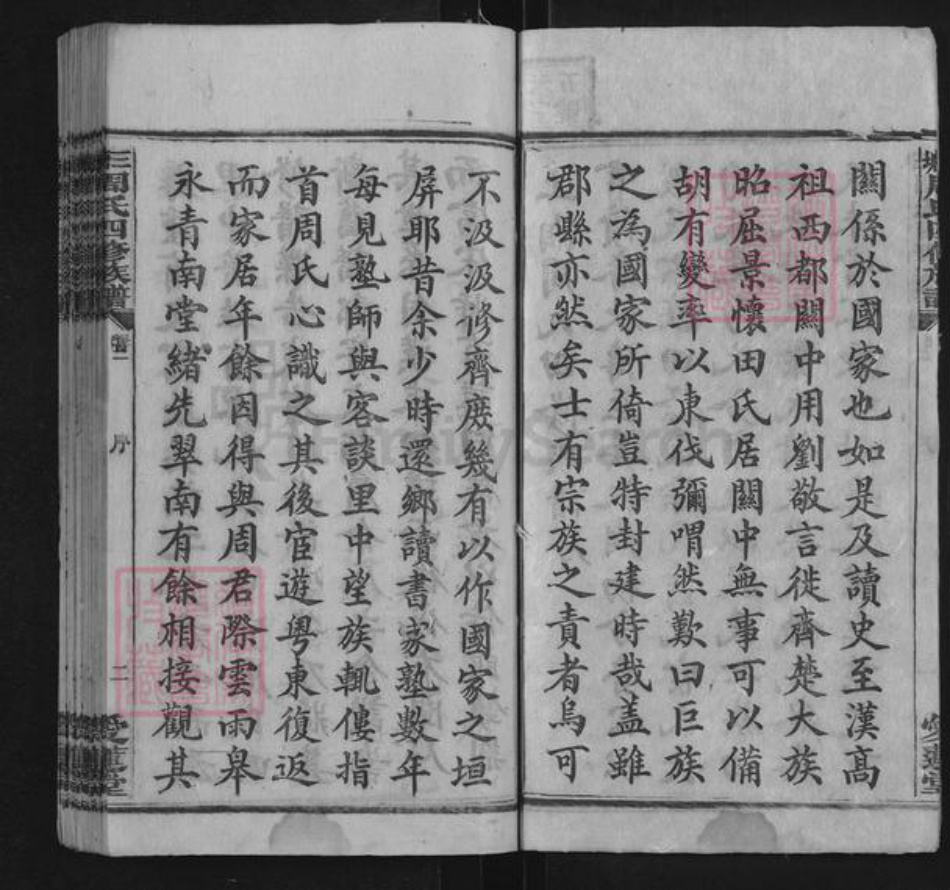 關係於國家也如是及讀史至漢高
祖西都關中用劉敬言徙齊楚大族
昭屈景懷田氏居關中無事可以備
胡有變率以東伐彌喟然歎曰巨族
之為國家所倚豈特封建時哉蓋雖
郡縣亦然矣士有宗族之責者烏可
不汲汲修齊庶幾有以作國家之垣
屏耶昔余少時還鄉讀書家塾數年
每見塾師與客談里中望族輒僂指
首周氏心識之其後宦遊粵東復返
而家居年餘因得與周君際雲雨皋
永青南堂緒先翠南有餘相接觀其
周氏四修族譜
序
二
FamilySearch